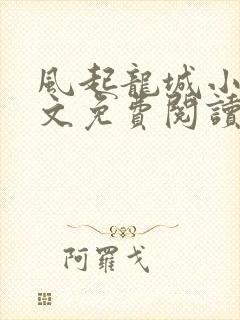 風起龍城小
文免費閱讀
阿羅戈